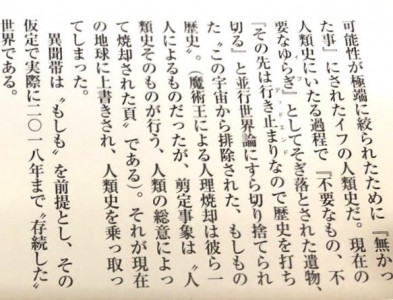 可能性が極端に絞られたために『無かっ
た事』にされたイフの人類史だ。現在の
人類史にいたる過程で『不要なもの、不
要なゆらぎ』としてそぎ落とされた遺物、
デッドエンド
『その先は行き止まりなので歴史を打ち
切る』と並行世界論にすら切り捨てられ
た〝この宇宙から排除された、もしもの
歴史〟。(魔術王による人理焼却は彼ら一
人によるものだったが、剪定事象は〝人
類史そのものが行う、人類の総意によっ
て焼却された頁〟である)。それが現在
の地球に上書きされ、人類史を乗っ取っ
てしまった。
　異聞帯は〝もしも〟を前提とし、その
仮定で実際に二〇一八年まで〝存続した〟
世界である。